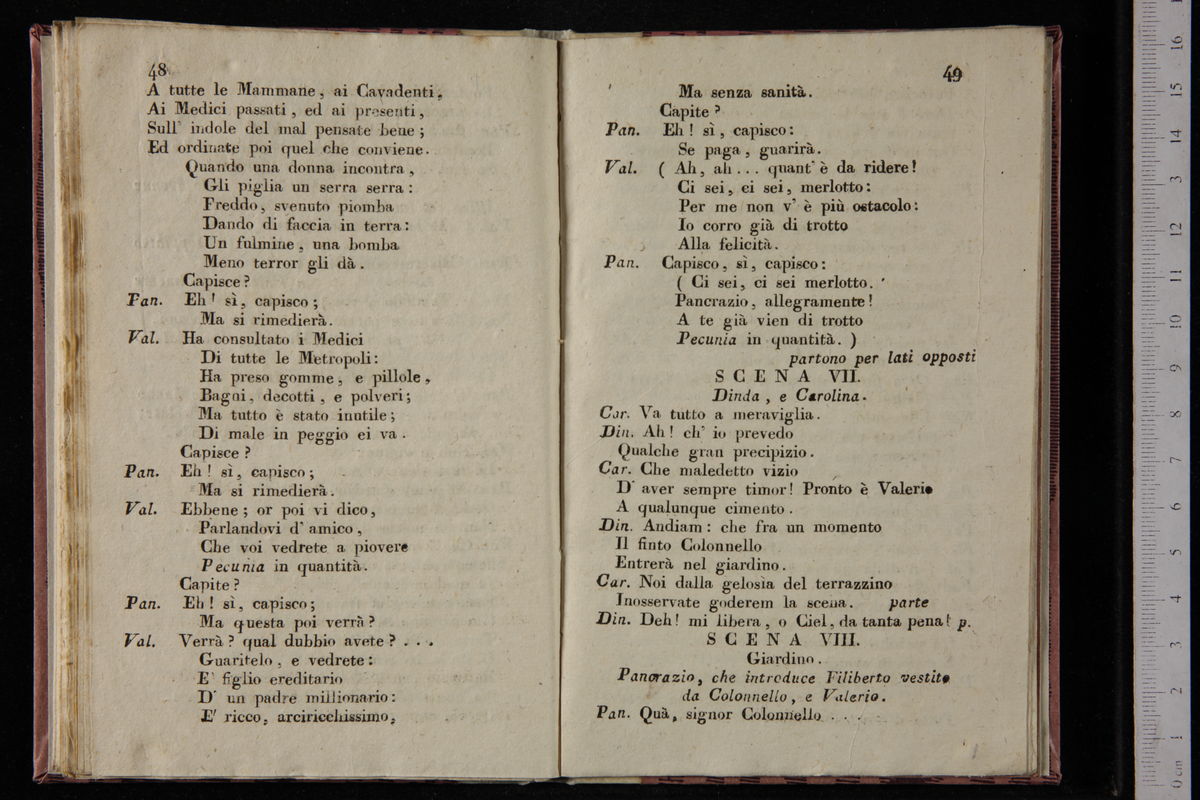 48
A tutte le Mammane, ai Cavadenti,
Ai Medici passati, ed ai presenti,
Sull' indole del mal pensate bene;
Ed ordinate poi quel che conviene.
Quando una donna incontra,
Gli piglia un serra serra:
Freddo, svenuto piomba
Dando di faccia in terra:
Un fulmine, una bomba
Meno terror gli dà.
Capisce?
Pan. Eh! sì, capisco;
Ma si rimedierà.
Val. Ha consultato i Medici
Di tutte le Metropoli:
Ha preso gomme, e pillole,
Bagni, decotti, e polveri;
Ma tutto è stato inutile;
Di male in peggio ei va.
Capisce?
Pan. Eh! sì, capisco;
Ma si rimedierà.
Val. Ebbene; or poi vi dico,
Parlandovi d' amico,
Che voi vedrete a piovere
Pecunia in quantità.
Capite?
Pan. Eh! sì, capisco;
Ma questa poi verrà?
Val. Verrà? qual dubbio avete? . . .
Guaritelo, e vedrete:
E' figlio ereditario
D' un padre millionario:
E' ricco, arciricchissimo,
49
Ma senza sanità.
Capite?
Pan. Eh! sì, capisco:
Se paga, guarirà.
Val. ( Ah, ah . . . quant' è da ridere!
Ci sei, ci sei, merlotto:
Per me non v' è più ostacolo:
Io corro già di trotto
Alla felicità.
Pan. Capisco, sì, capisco:
( Ci sei, ci sei merlotto.
Pancrazio, allegramente!
A te già vien di trotto
Pecunia in quantità. )
partono per lati opposti
SCENA VII.
Dinda, e Carolina.
Car. Va tutto a meraviglia.
Din. Ah! ch' io prevedo
Qualche gran precipizio.
Car. Che maledetto vizio
D' aver sempre timor! Pronto è Valerio
A qualunque cimento.
Din. Andiam: che fra un momento
Il finto Colonnello
Entrerà nel giardino.
Car. Noi dalla gelosìa del terrazzino
Inosservate goderem la scena. parte
Din. Deh! mi libera, o Ciel, da tanta pena! p.
SCENA VIII.
Giardino.
Pancrazio, che introduce Filiberto vestito
da Colonnello, e Valerio.
Pan. Quà, signor Colonnello . . .
16
15
14
13
12
11
10
9
8
7
6
5
4
3
2
1
0 cm